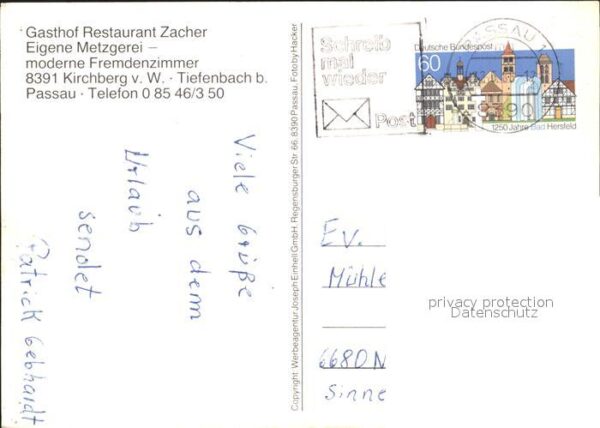 Gasthof Restaurant Zacher
Eigene Metzgerei –
moderne Fremdenzimmer
8391 Kirchberg v. W. · Tiefenbach b.
Passau · Telefon 0 85 46/3 50
Viele Grüße
aus dem
Urlaub
sendet
Patrick Gebhardt
Copyright Werbeagentur Joseph Einhell GmbH. Regensburger Str. 66 8390 Passau. Foto by Hacker
Schreib
mal
wieder
Post
PASSAU 1
8390
Deutsche Bundespost
60
1250 Jahre Bad Hersfeld
Ev.
Mühle
6680 N
Sinne
privacy protection
Datenschutz